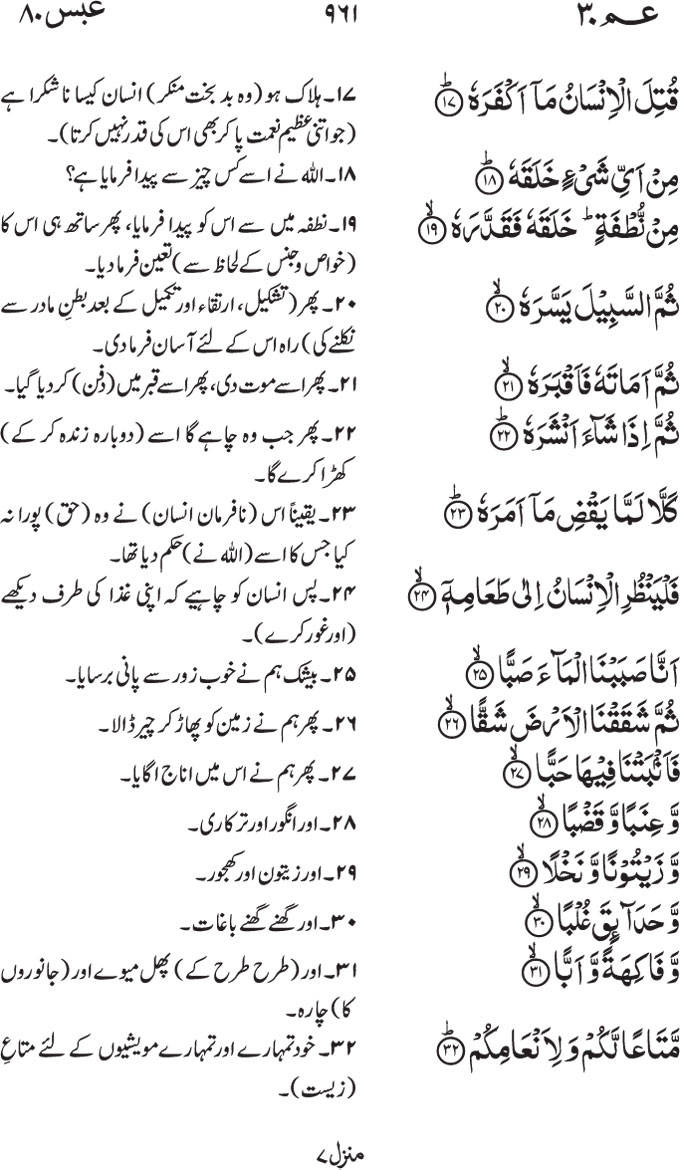 عـم ٣٠ ٩٦١ عبس ٨٠
قُتِلَ الْاِنْسَانُ مَاۤ اَكْفَرَهٗ ؕ﴿۱۷﴾ ١٧۔ ہلاک ہو (وہ بد بخت منکر) انسان کیسا ناشکرا ہے
(جو اتنی عظیم نعمت پا کر بھی اس کی قدر نہیں کرتا)۔
مِنْ اَیِّ شَیْءٍ خَلَقَهٗ ؕ﴿۱۸﴾ ١٨۔ اللہ نے اسے کس چیز سے پیدا فرمایا ہے؟
مِنْ نُّطْفَةٍ ؕ خَلَقَهٗ فَقَدَّرَهٗ ۙ﴿۱۹﴾ ١٩۔ نطفہ میں سے اس کو پیدا فرمایا، پھر ساتھ ہی اس کا
(خواص و جنس کے لحاظ سے) تعین فرما دیا۔
ثُمَّ السَّبِیْلَ یَسَّرَهٗ ۙ﴿۲۰﴾ ٢٠۔ پھر (تشکیل، ارتقاء اور تکمیل کے بعد بطنِ مادر سے
نکلنے کی) راہ اس کے لئے آسان فرما دی۔
ثُمَّ اَمَاتَهٗ فَاَقْبَرَهٗ ۙ﴿۲۱﴾ ٢١۔ پھر اسے موت دی، پھر اسے قبر میں (دفن) کر دیا گیا۔
ثُمَّ اِذَا شَآءَ اَنْشَرَهٗ ؕ﴿۲۲﴾ ٢٢۔ پھر جب وہ چاہے گا اسے (دوبارہ زندہ کر کے)
کھڑا کرے گا۔
كَلَّا لَمَّا یَقْضِ مَاۤ اَمَرَهٗ ؕ﴿۲۳﴾ ٢٣۔ یقیناً اس (نافرمان انسان) نے وہ (حق) پورا نہ
کیا جس کا اسے (اللہ نے) حکم دیا تھا۔
فَلْیَنْظُرِ الْاِنْسَانُ اِلٰی طَعَامِهٖۤ ۙ﴿۲۴﴾ ٢۴۔ پس انسان کو چاہیے کہ اپنی غذا کی طرف دیکھے
(اور غور کرے)۔
اَنَّا صَبَبْنَا الْمَآءَ صَبًّا ۙ﴿۲۵﴾ ٢۵۔ بیشک ہم نے خوب زور سے پانی برسایا۔
ثُمَّ شَقَقْنَا الْاَرْضَ شَقًّا ۙ﴿۲۶﴾ ٢۶۔ پھر ہم نے زمین کو پھاڑ کر چیر ڈالا۔
فَاَنْۢبَتْنَا فِیْهَا حَبًّا ۙ﴿۲۷﴾ ٢٧۔ پھر ہم نے اس میں اناج اگایا۔
وَّ عِنَبًا وَّ قَضْبًا ۙ﴿۲۸﴾ ٢٨۔ اور انگور اور ترکاری۔
وَّ زَیْتُوْنًا وَّ نَخْلًا ۙ﴿۲۹﴾ ٢٩۔ اور زیتون اور کھجور۔
وَّ حَدَآئِقَ غُلْبًا ۙ﴿۳۰﴾ ٣٠۔ اور گھنے گھنے باغات۔
وَّ فَاكِهَةً وَّ اَبًّا ۙ﴿۳۱﴾ ٣١۔ اور (طرح طرح کے) پھل میوے اور (جانوروں
کا) چارہ۔
مَّتَاعًا لَّكُمْ وَ لِاَنْعَامِكُمْ ؕ﴿۳۲﴾ ٣٢۔ خود تمہارے اور تمہارے مویشیوں کے لئے متاعِ
(زیست)۔
منزل ٧